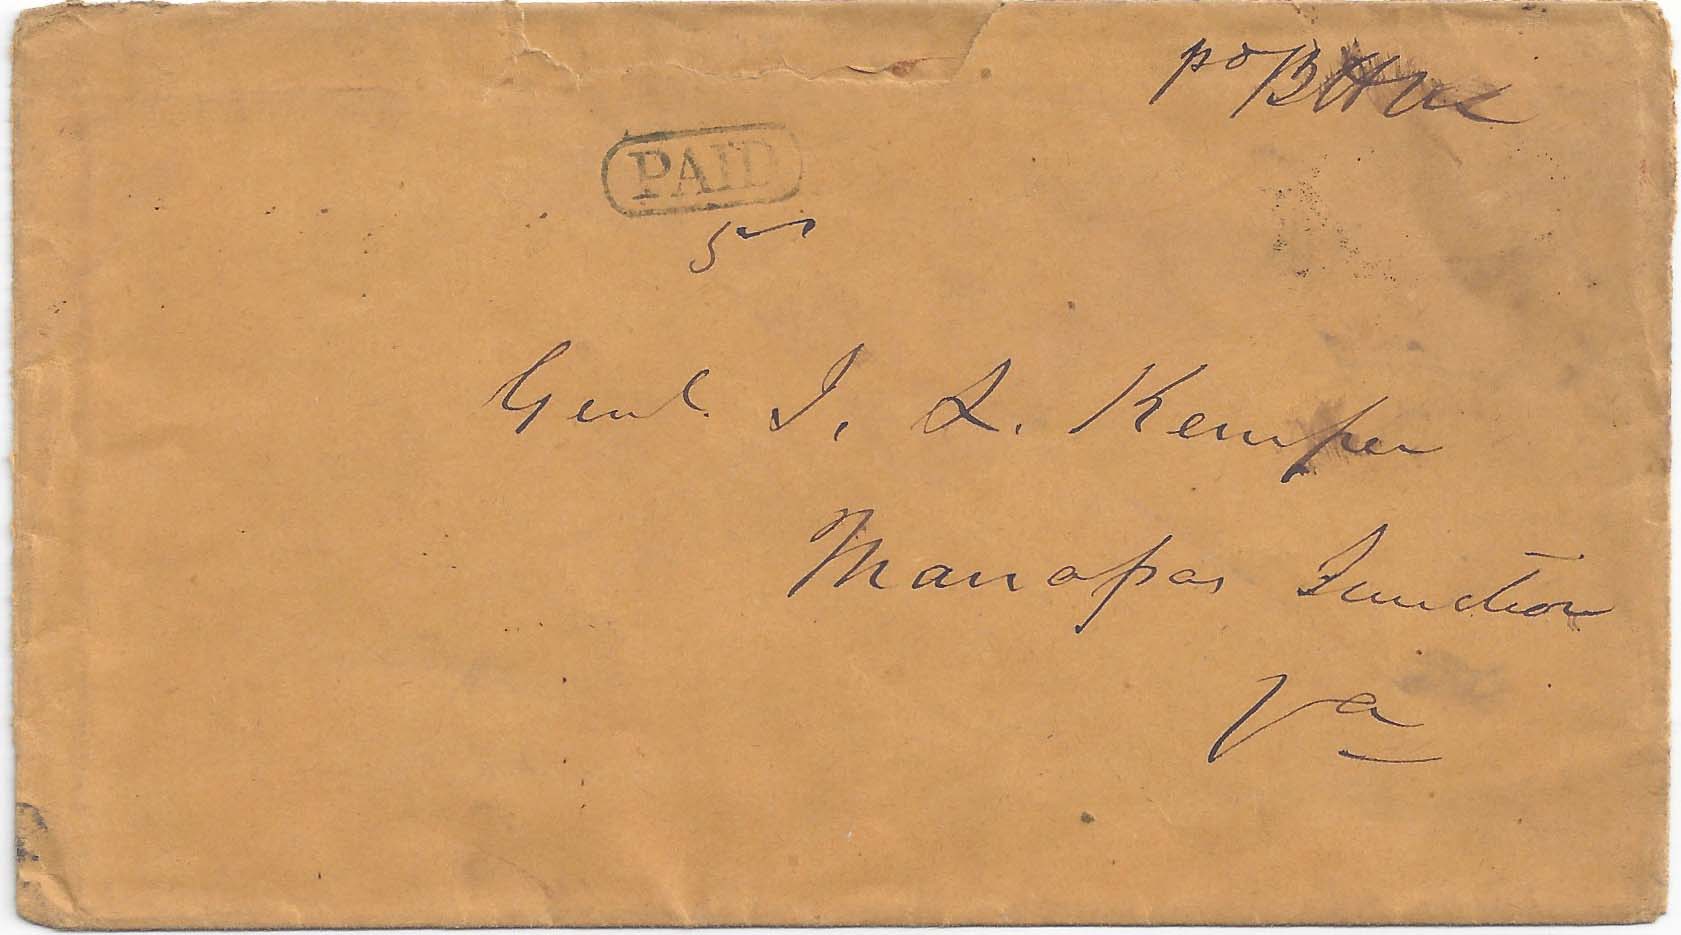 PAID
5
Genl. J. L. Kemper
Manasas Junction
Va